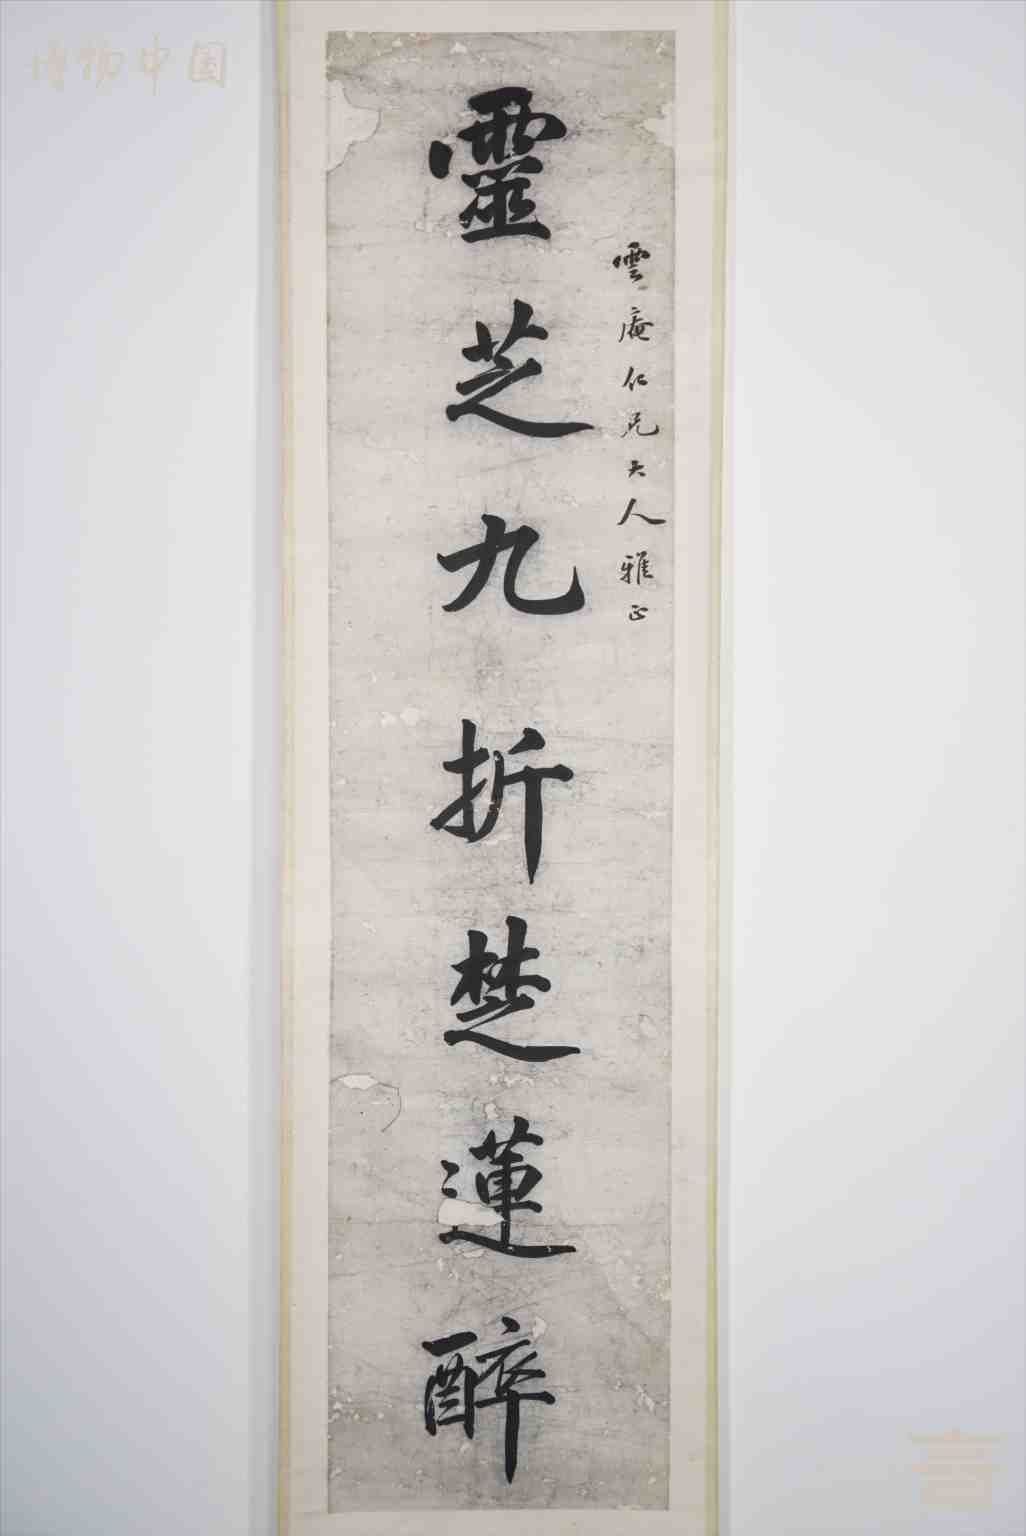 博物中国
雲庵仁兄大人雅正
靈芝九折楚蓮醉